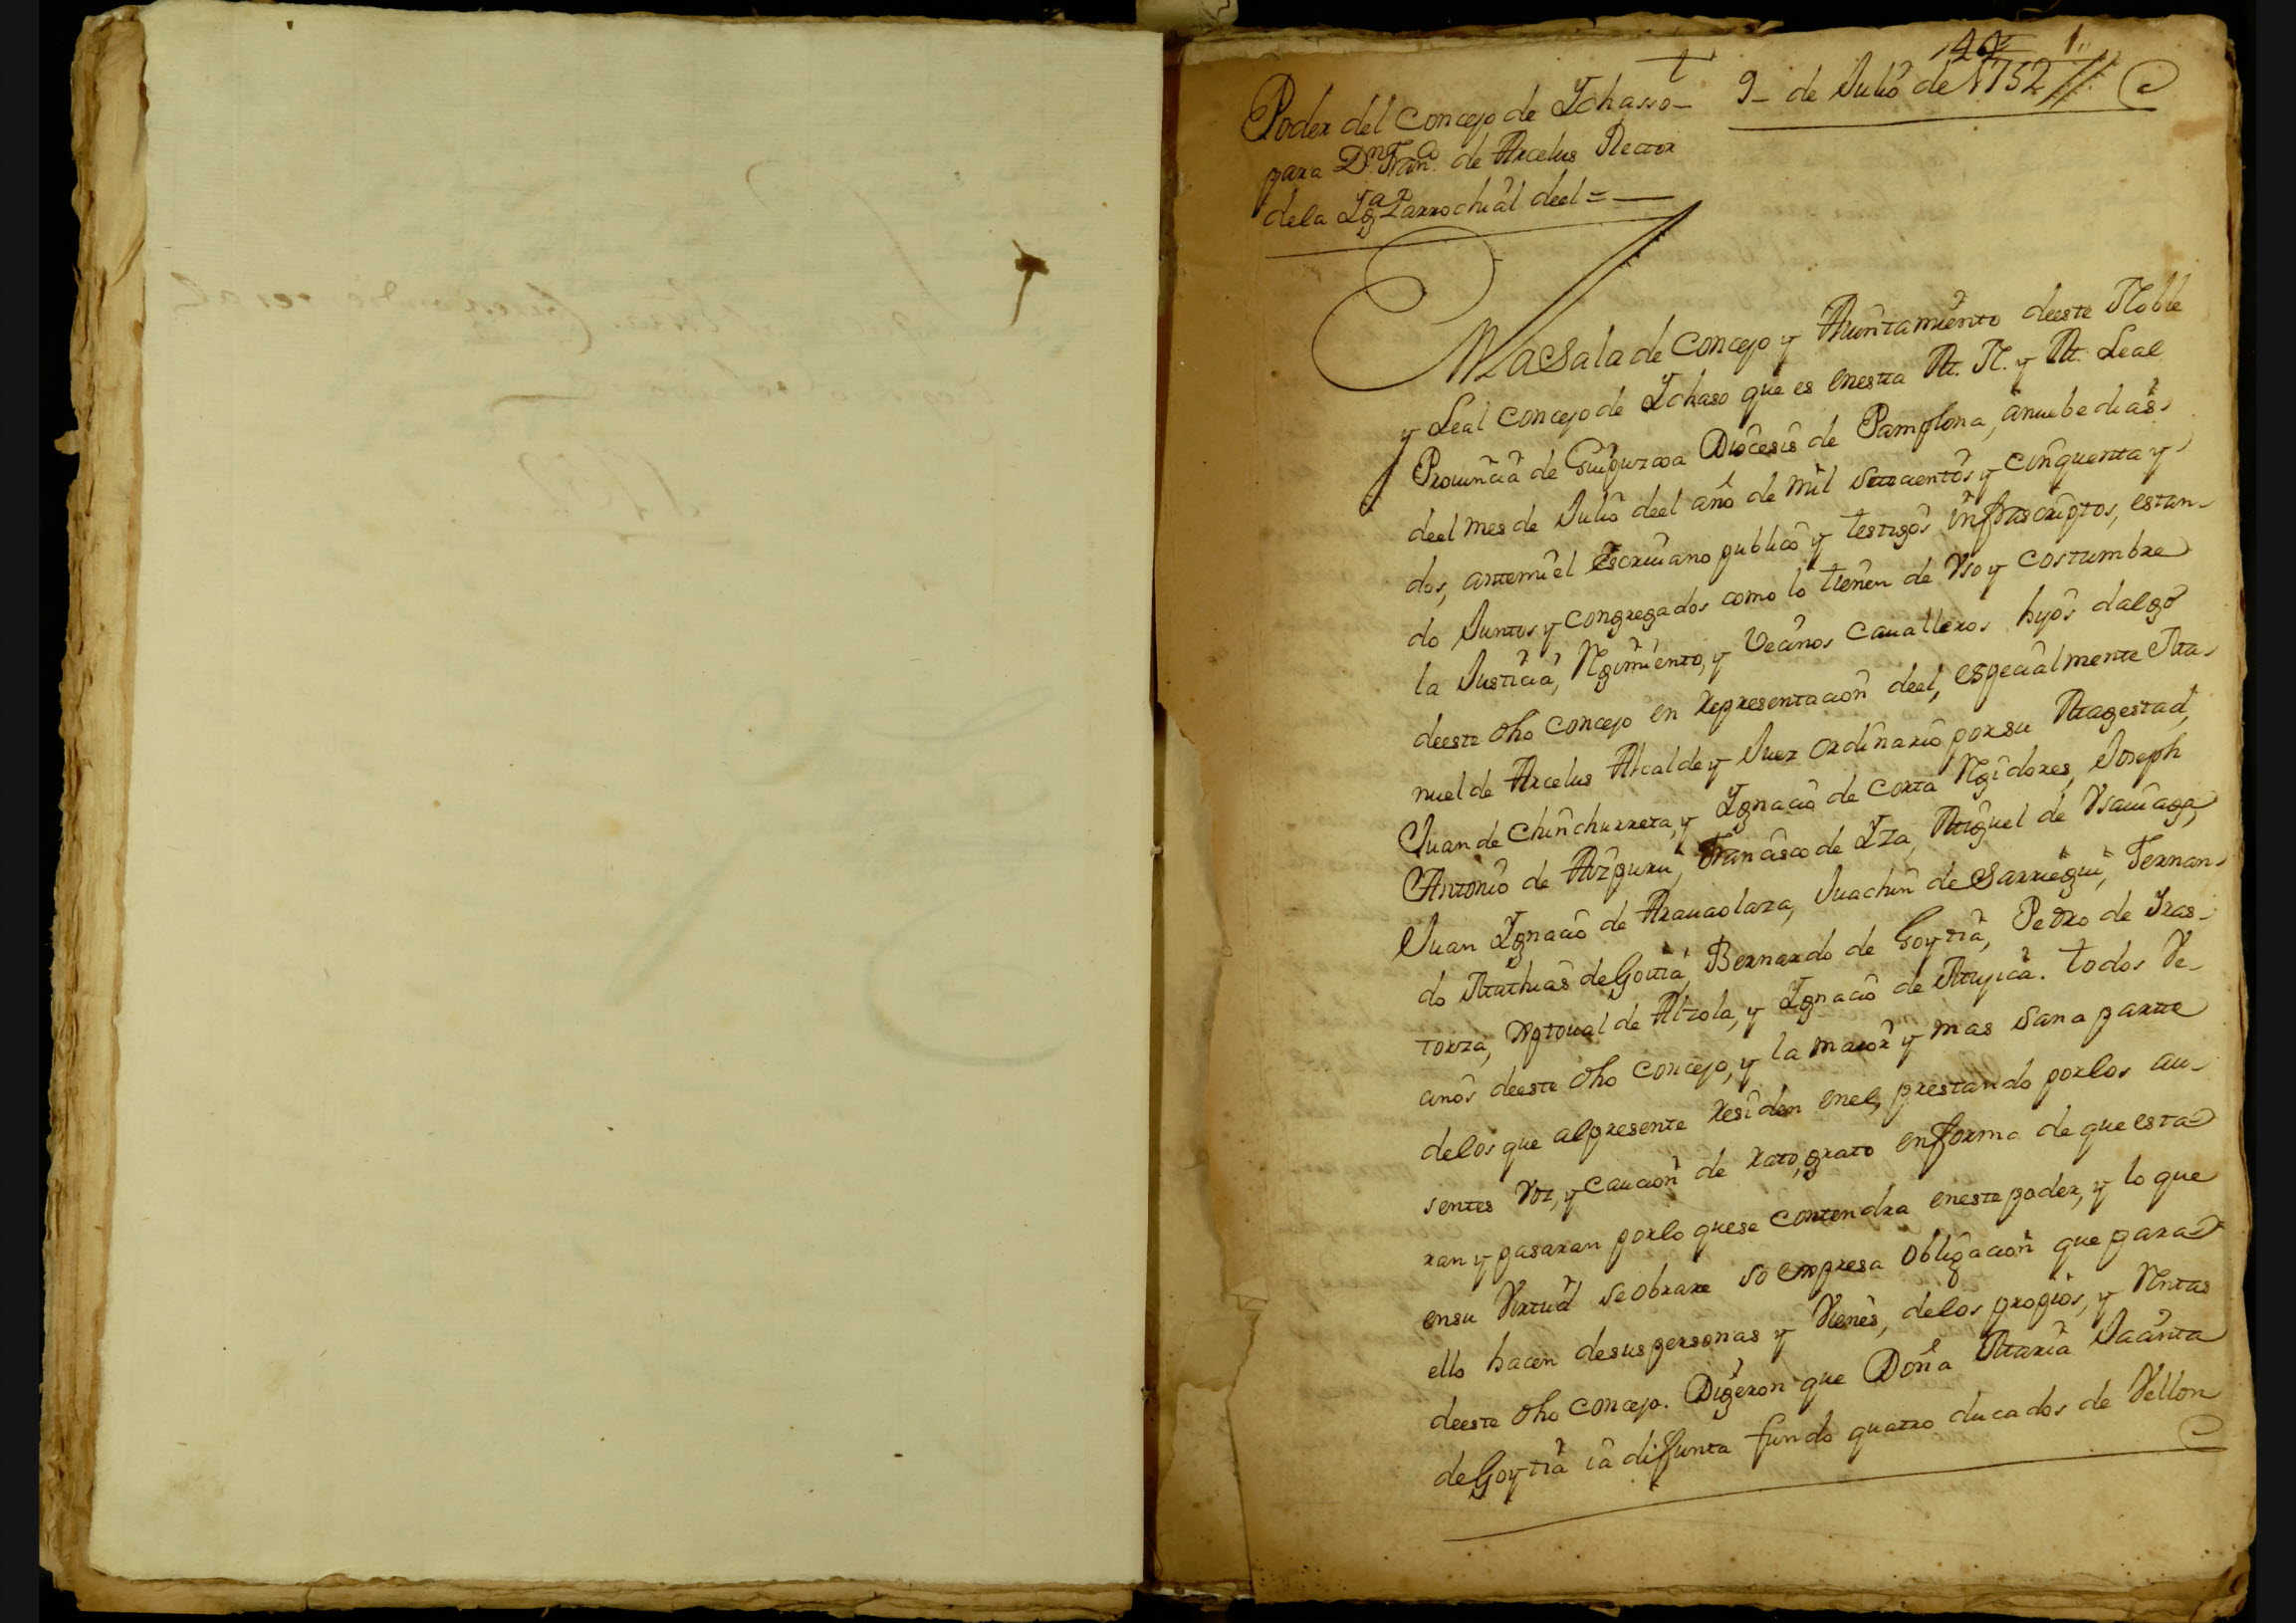 142 1
9_ de Julio de 1752 //
Poder del Concejo de Ychasso_
para Dn. Franco. de Arcelus Rector
dela Yga Parrochial deel = __
En la Sala de Concejo y Aiuntamiento deeste Noble
y Leal Concejo de Ychaso que es enesta M. N. y M. Leal
Prouincia de Guipuzcoa Diocesis de Pamplona, a nuebe dias
deel mes de Julio deel año de mil settecientos y cinquenta y
dos, antemi el Escriuano publico y testigos infrascriptos, estan-
do Juntos y congregados como lo tienen de Vso y costumbre
la Justicia, Rgimiento, y Vecinos Caualleros hijos dalgo
deeste dho Concejo en representacion deel, especialmente Ma-
nuel de Arcelus Alcalde y Juez ordinario por su Magestad,
Juan de Chinchurreta, y Ygnacio de Corta Rgidores, Joseph
Antonio de Aizpuru, Francisco de Yza, Miguel de Vsauiaga,
Juan Ygnacio de Araucolaza, Juachin de Sarriegui, Fernan-
do Mathias de Goitia, Bernardo de Goytia, Pedro de Yras-
torza, Xptoual de Alzola, y Ygnacio de Mujica. todos Ve-
cinos deeste dho Concejo, y la maior y mas sana partte
delos que alpresente residen enel, prestando porlos au-
sentes Voz, y Caucion de rato, grato enforma de que esta-
ran y pasaran porlo quese contendra eneste poder, y lo que
ensu Virtud se obrare so expresa obligacion que para
ello hacen desus personas y Vienes, delos propios, y Rentas
deeste dho Concejo. Digeron que Doña Maria Jacinta
de Goytia ia difunta fundo quatro ducados de Vellon